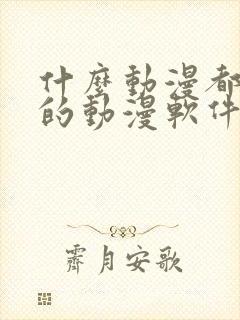 什麼動漫都
的動漫軟件
霽月安歌